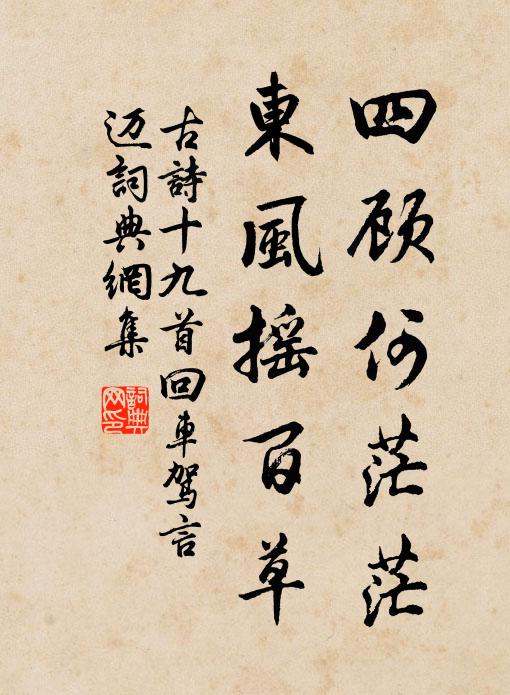 四顾何茫茫
東風摇百草
古詩十九首回車驾言
迈詞典網集
詞典网印